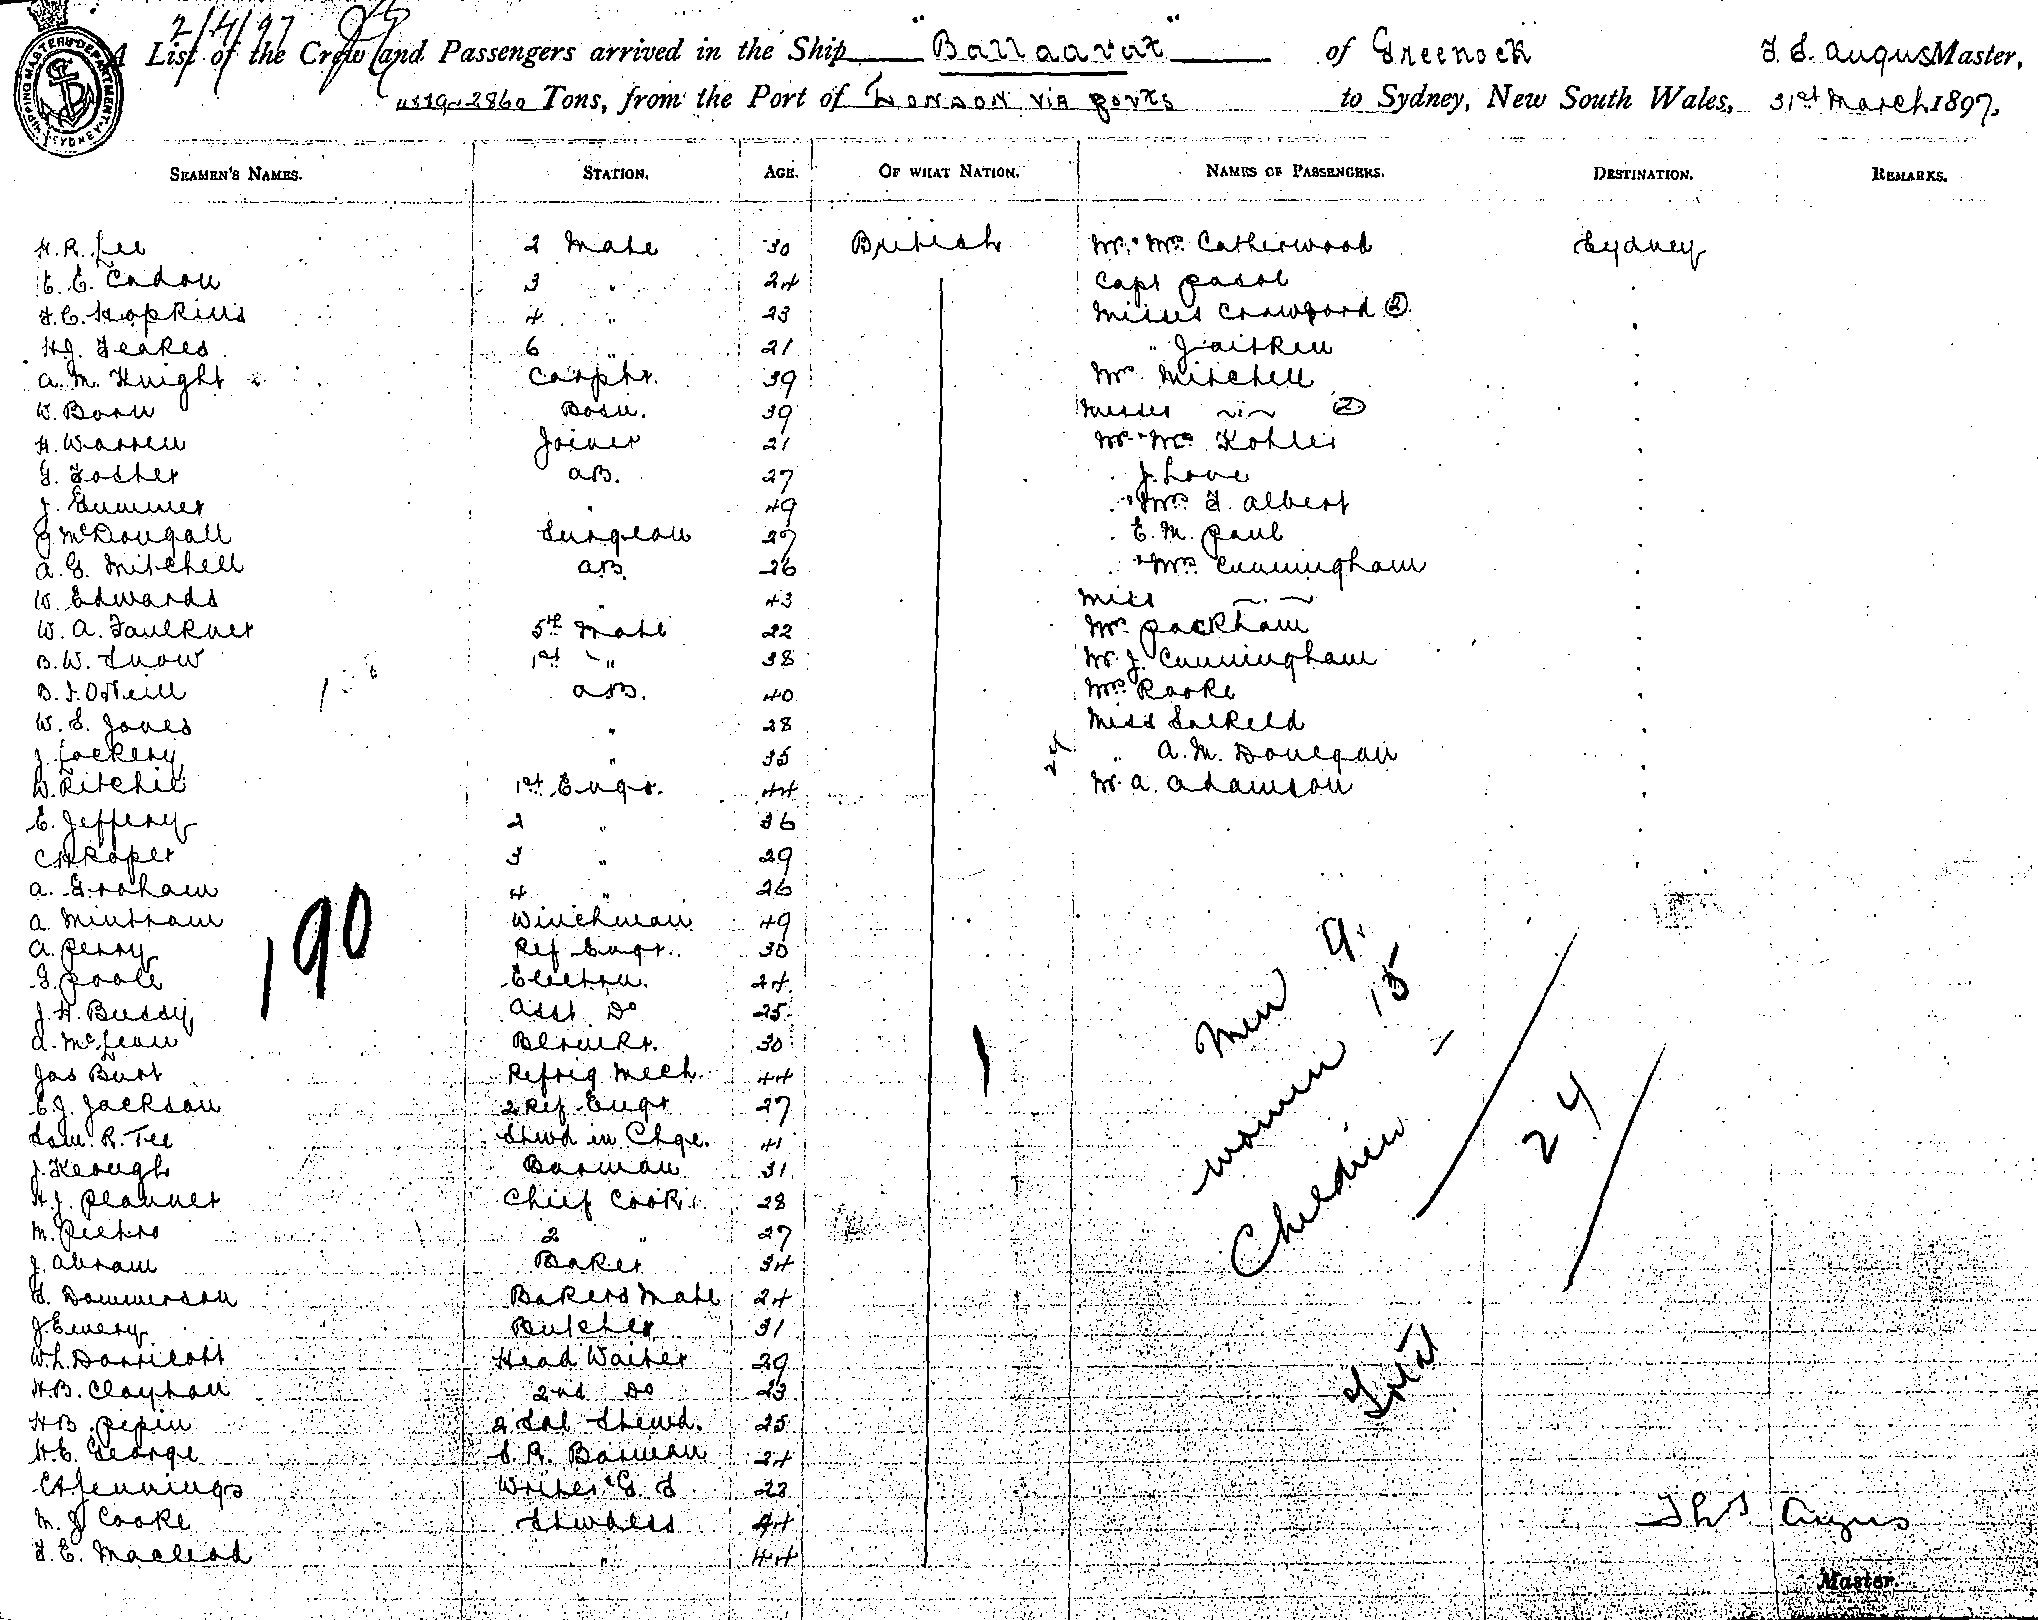 2/4/97
A List of the Crew and Passengers arrived in the Ship "Ballaarat" of Greenock T. S. Angus Master,
Tons, from the Port of London via ports to Sydney, New South Wales, 31st March 1897.
SEAMEN'S NAMES. STATION. AGE. OF WHAT NATION. NAMES OF PASSENGERS. DESTINATION. REMARKS.
H. R. Lee 2 Mate 30 British Mr. Mrs Catherwood Sydney
E. E. Cadou 3 " 24 Capt
F. C. Hopkins 4 " 23 Misses Crawford 2
H. J. Feakes 6 " 21 " Jaitken
A. M. Knight Carptr. 39 Mrs Mitchell
W. Born Bosn. 39 Misses 2
H. Warren Joiner 21 Mr. Mrs Kohler
G. Foster AB. 27 J. Love
J. Gummer " 49 Mrs F. Albert
J McDougall Surgeon 27 E. M. Paul
A. G. Mitchell AB. 26 Mrs Cunningham
W. Edwards " 43 Miss
W. A. Faulkner 5th Mate 22 Mrs Packham
B. W. Snow 1st " 38 Mr. J. Cunningham
B. J. O'Neill AB. 40 Mrs Rooke
W. S. Jones " 28 Miss Salkeld
J. Lockery " 35 " A. M. Donegan
D. Ritchie 1st Engr. 44 Mr. A. Adamson
24
E. Jeffery 2 " 36
C H Roper 3 " 29
A. Graham 4 " 26
A Mintram Winchman 49
A. Perry Ref Engr. 30
G. Poole Electrn. 24
J. H. Bussy Asst Do 25
D. McLean 30
Jas Burt Refrig Mech. 44
E. J. Jackson 2 Ref Engr 27
Saml. R. Tee Stwd in Chge. 41
J. Keough Barman 31
H. J. Planner Chief Cook 28
M. Pietro 2 " 27
J. Abram Baker 34
Dommerson Bakers Mate 24
J Emery Butcher 31
W. L. Head Waiter 29
H. B. Clayton 2nd Do 23
H B Pepin 2 Sal Stewd. 25
H. E. George S. R. Barman 24
C H Jennings Writer 22
M. J Cooke Stwdess 44
F. E. Macleod " 44
190
Men 9
Women 15
Children -
24
Total
Thos Angus
Master.